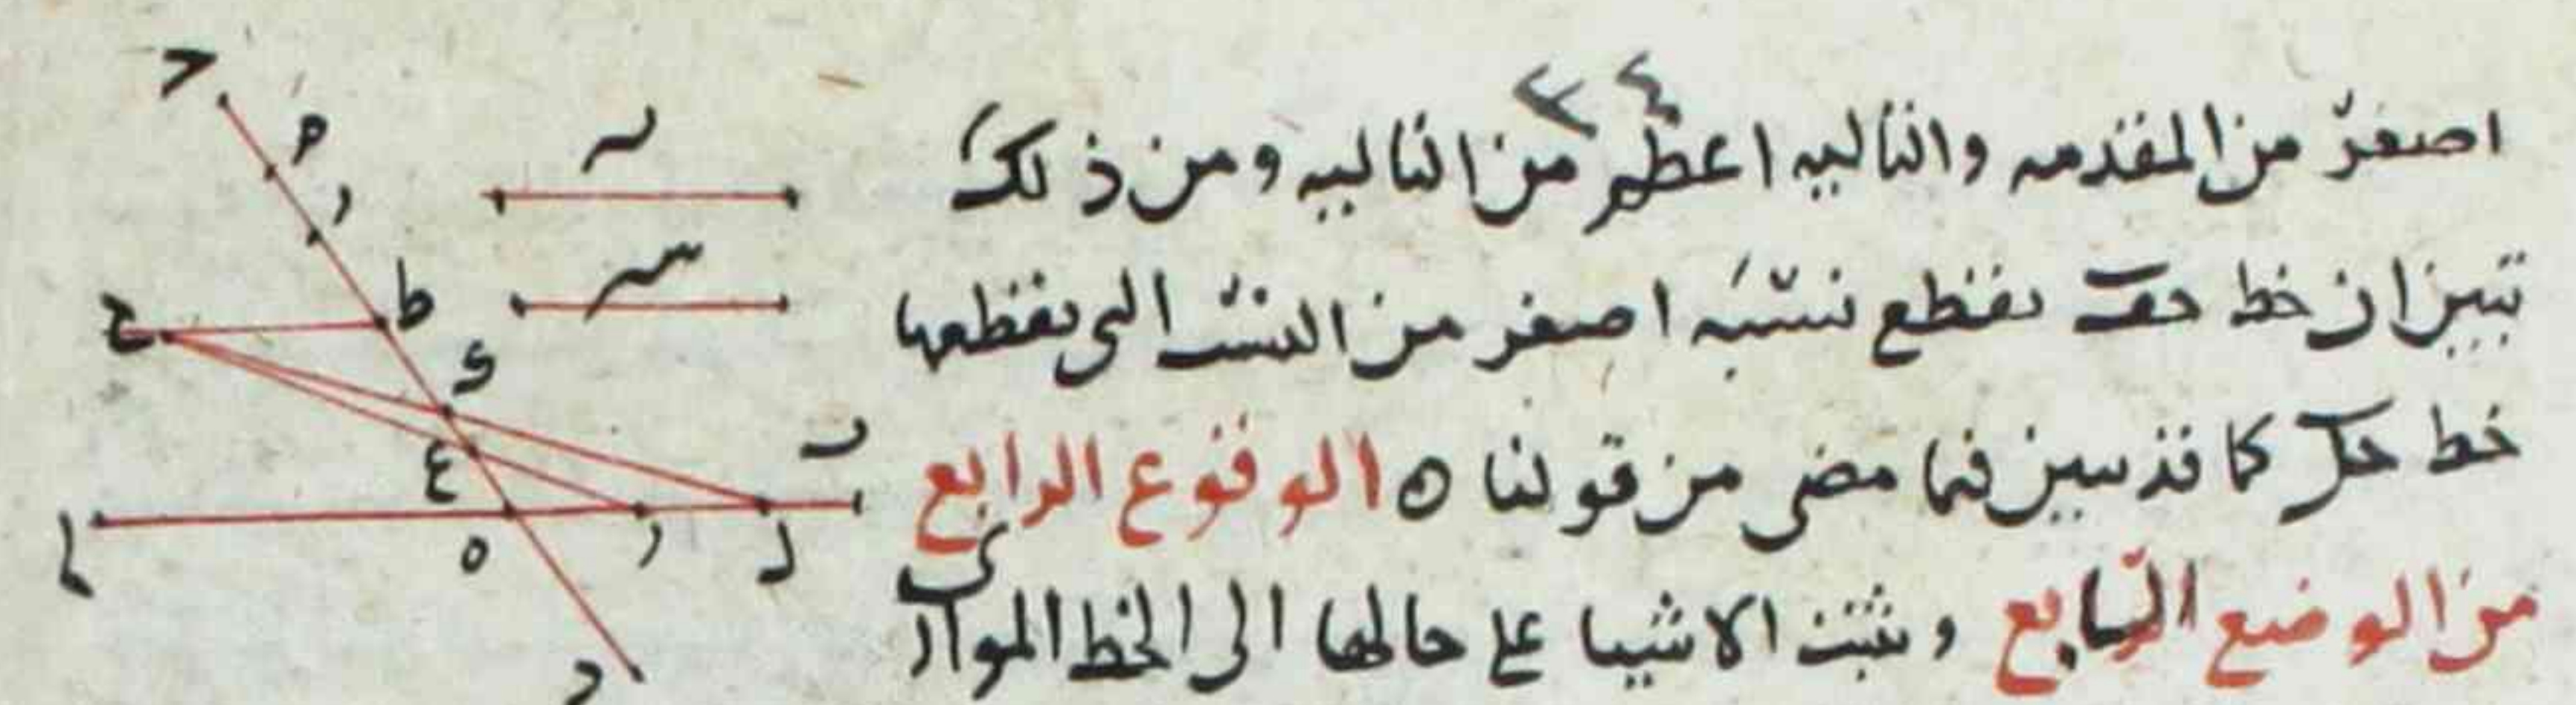 اصغر من المقدمه والتاليه اعظم من التاليه ومن ذلك
تبين ان خط حف يقطع نسبه اصغر من النسب التى يقطعها
خط حل كما قد تبين فيما مضى من قولنا ه الوقوع الرابع
من الوضع السابع ونثبت الاشيا على حالها الى الخط الموازى